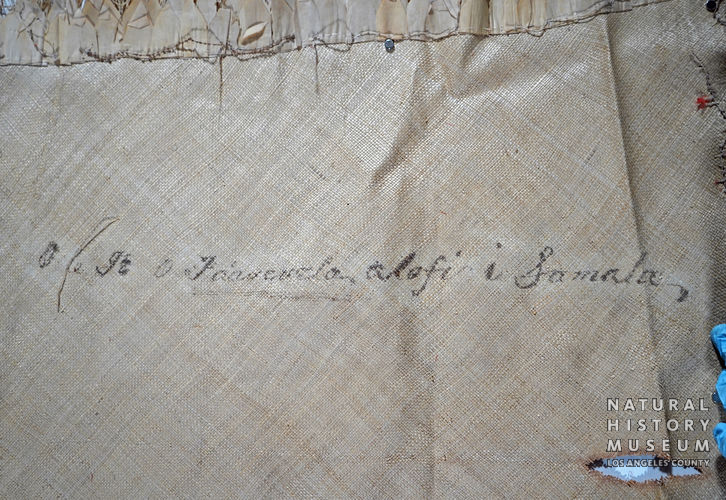 O le It o alofi i Samala,
NATURAL
HISTORY
MUSEUM
LOS ANGELES COUNTY